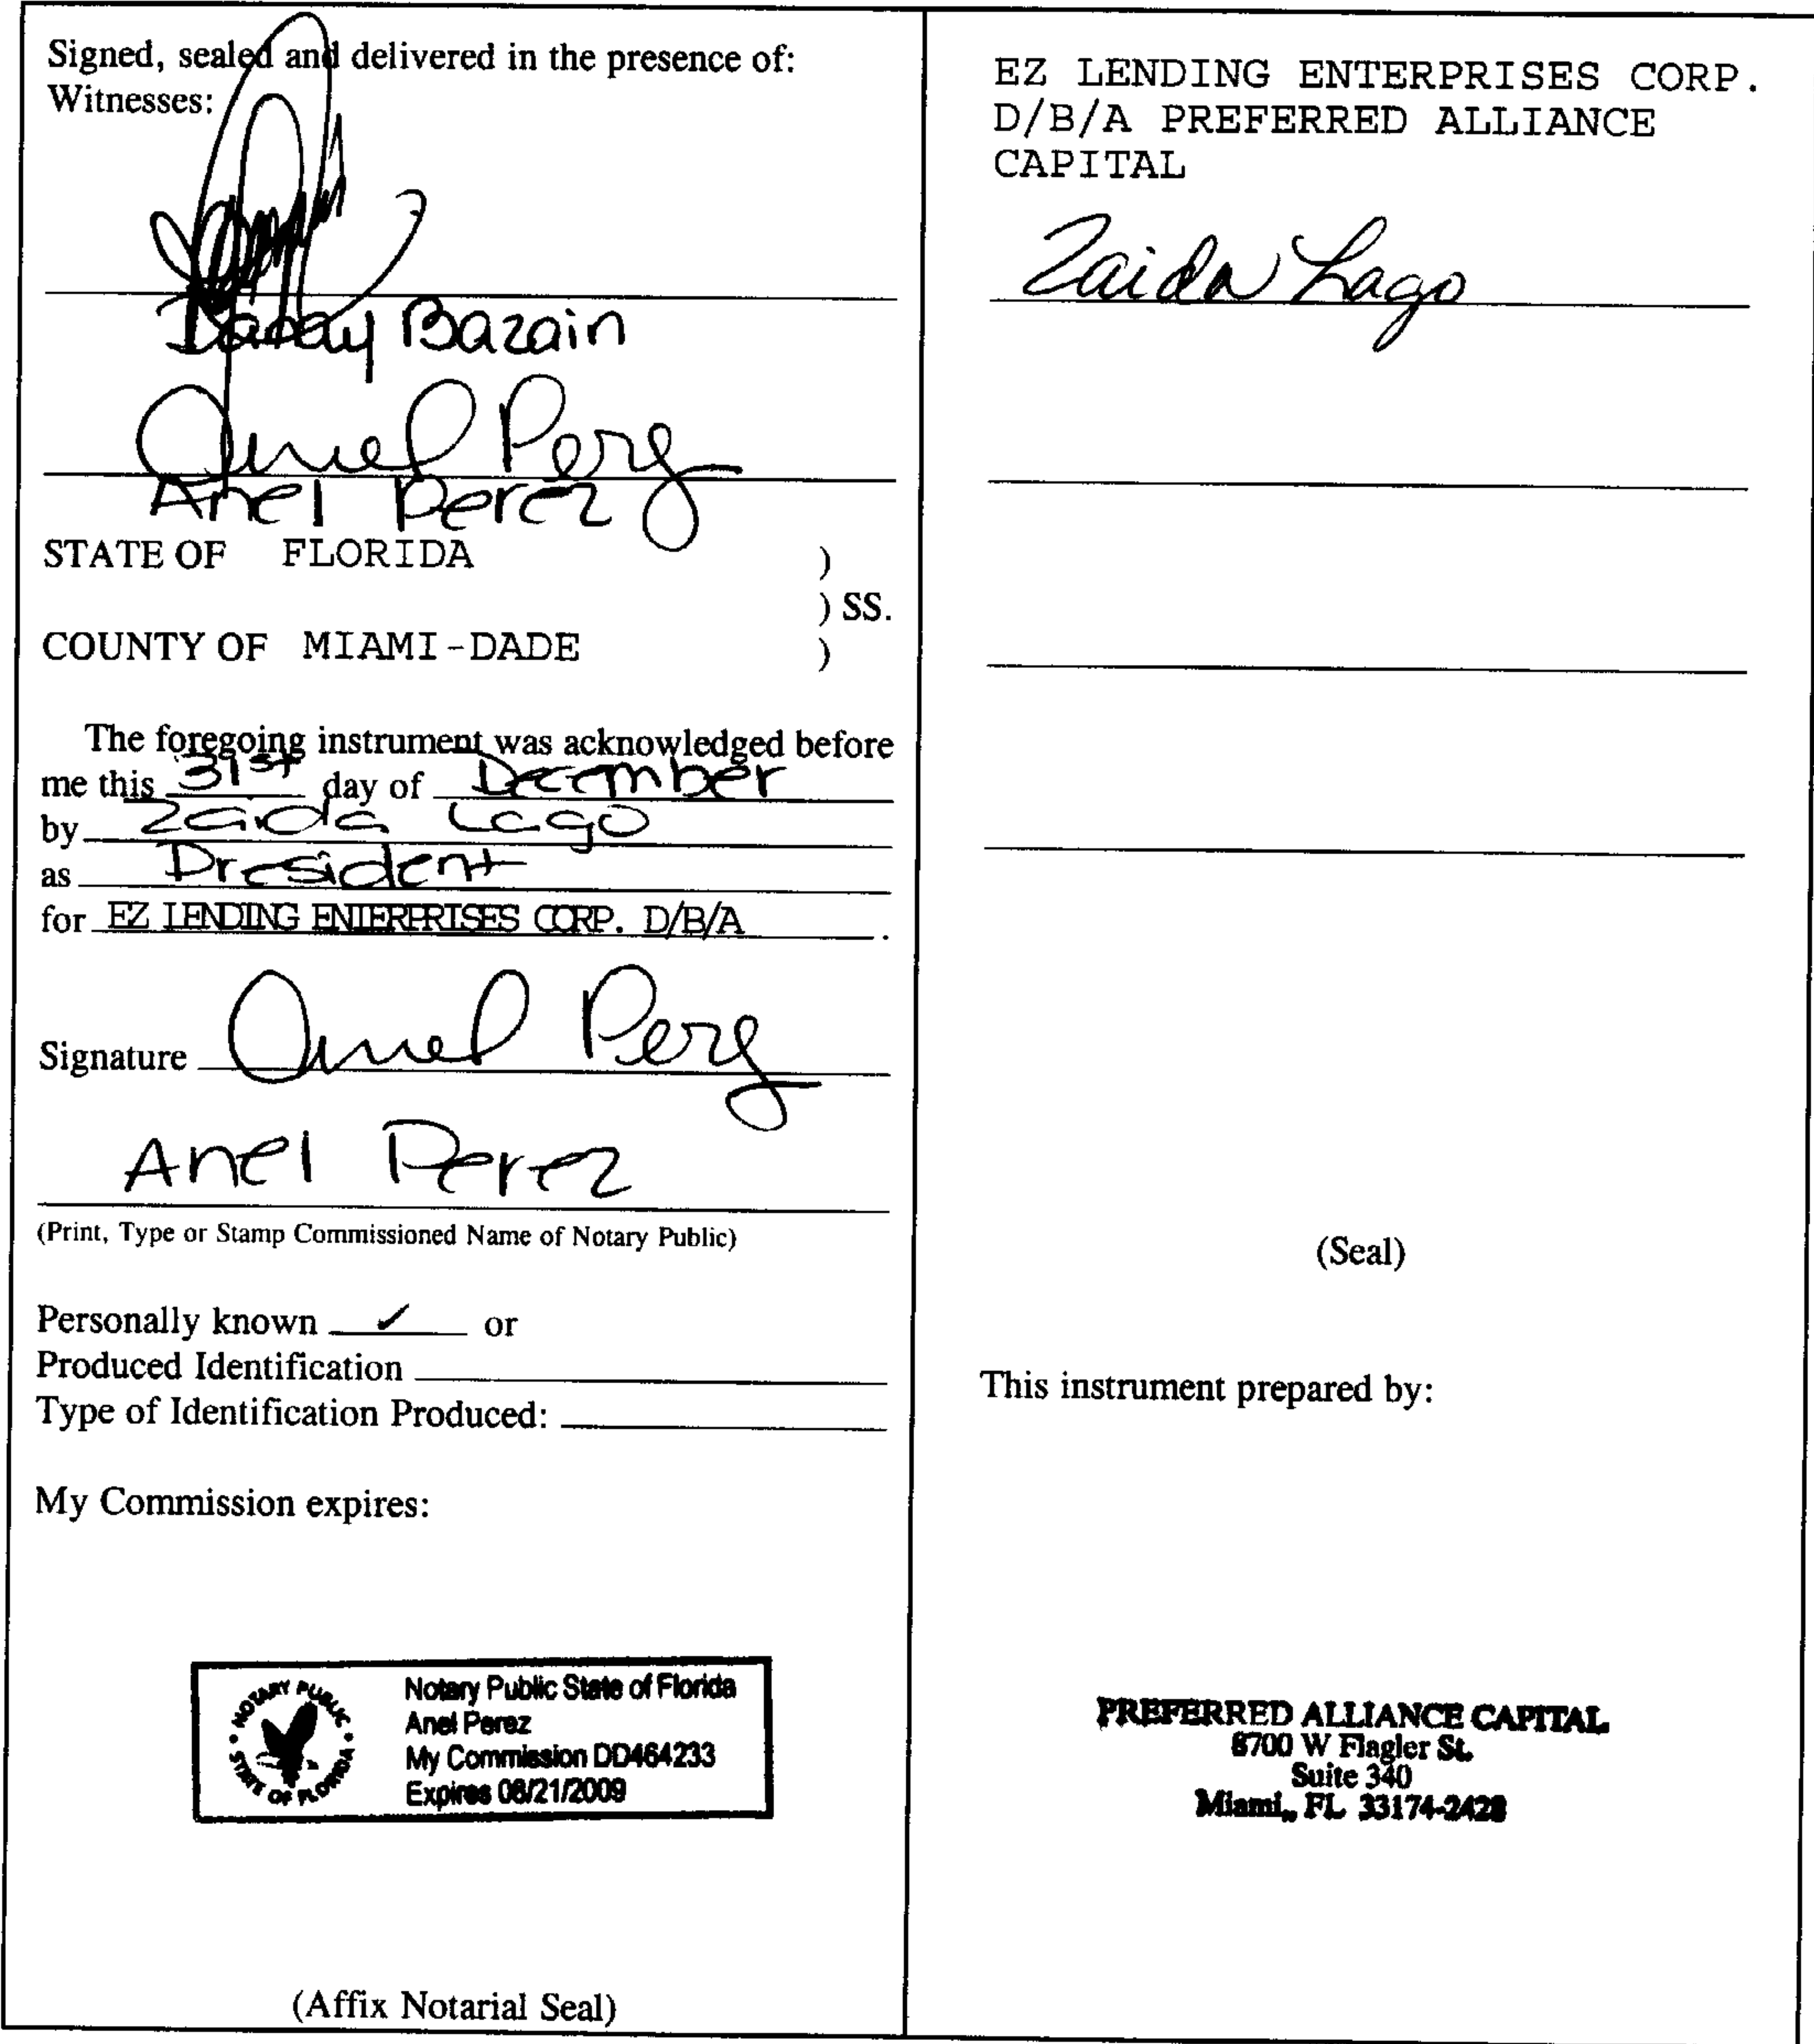 Signed, sealed and delivered in the presence of:
Witnesses:
Bazain
Anel Perez
Anel Perez
STATE OF FLORIDA )
) SS.
COUNTY OF MIAMI-DADE )
The foregoing instrument was acknowledged before
me this 31st day of December
by Zaida Lago
as President
for EZ LENDING ENTERPRISES CORP. D/B/A .
Signature Anel Perez
Anel Perez
(Print, Type or Stamp Commissioned Name of Notary Public)
Personally known ✓ or
Produced Identification
Type of Identification Produced:
My Commission expires:
NOTARY PUBLIC
STATE OF FLORIDA
Notary Public State of Florida
Anel Perez
My Commission DD464233
Expires 08/21/2009
(Affix Notarial Seal)
EZ LENDING ENTERPRISES CORP.
D/B/A PREFERRED ALLIANCE
CAPITAL
Zaida Lago
(Seal)
This instrument prepared by:
PREFERRED ALLIANCE CAPITAL
8700 W Flagler St.
Suite 340
Miami,, FL 33174-2428